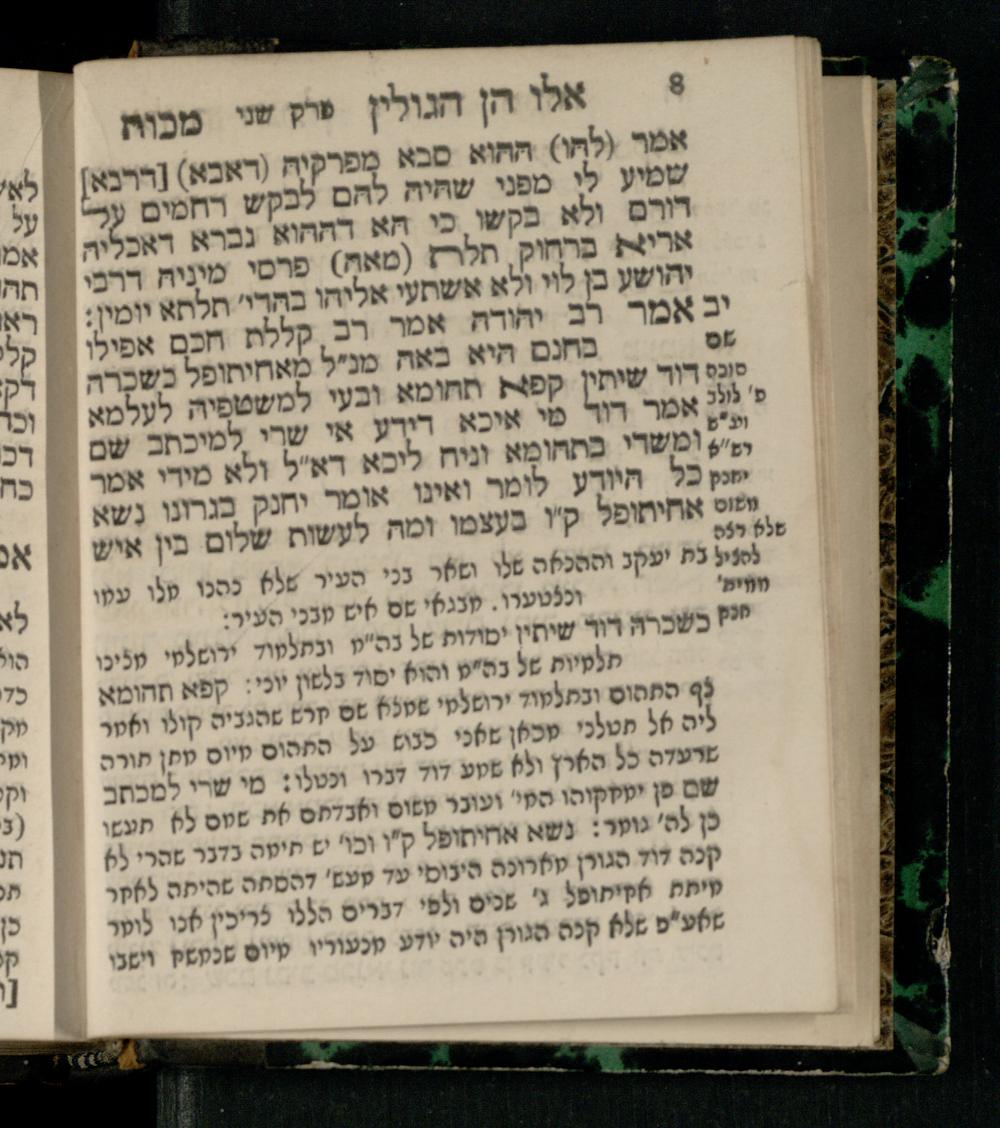 8
אלו הן הגולין פרק שני מכות
אמר (להו) ההוא סבא מפרקיה (דאבא) [דרבא]
שמיע לי מפני שהיה להם לבקש רחמים על
דורם ולא בקשו כי הא דההוא גברא דאכליה
אריא ברחוק תלת (מאה) פרסי מיניה דרבי
יהושע בן לוי ולא אשתעי אליהו בהדי׳ תלתא יומין:
יב אמר רב יהודה אמר רב קללת חכם אפילו
בחנם היא באה מנ״ל מאחיתופל כשכרה
דוד שיתין קפא תהומא ובעי למשטפיה לעלמא
אמר דוד מי איכא דידע אי שרי למיכתב שם
ומשדי בתהומא וניח ליכא דא״ל ולא מידי אמר
כל היודע לומר ואינו אומר יחנק בגרונו נשא
אחיתופל ק״ו בעצמו ומה לעשות שלום בין איש
שם
סוכה
פ׳ לולב
וע״ש
רש״א
יחנק
משום
שלא רצה
להציל
ממית׳
חנק
בת יעקב וההכאה שלו ושאר בני העיר שלא כהנו מלו עמו
ונצטערו. מבנאי שם איש מבני העיר:
כשכרה דוד שיתין יסודות של בה״מ ובתלמוד ירושלמי מפיכו
תלמיות של בה״מ והוא יסוד בלשון יוני: קפא תהומא
צף התהום ובתלמוד ירושלמי שמצא שם חרש שהגביה קולו ואמר
ליה אל תטלני מכאן שאני כבוש על התהום מיום מתן תורה
שרעדה כל הארץ ולא שמע דוד דברו ונטלו: מי שרי למכתב
שם פן ימחקוהו המי׳ ועובר משום ואבדתם את שמם לא תעשו
כן לה׳ גומר: נשא אחיתופל ק״ו וכו׳ יש תימה בדבר שהרי לא
קנה דוד הגורן מארונה היבוסי עד מעש׳ דהסתה שהיתה לאחר
מיתת אחיתופל ג׳ שנים ולפי דברים הללו צריכין אנו לומר
שאע״פ שלא קנה הגורן היה יודע מנעוריו מיום שנמשח וישבו